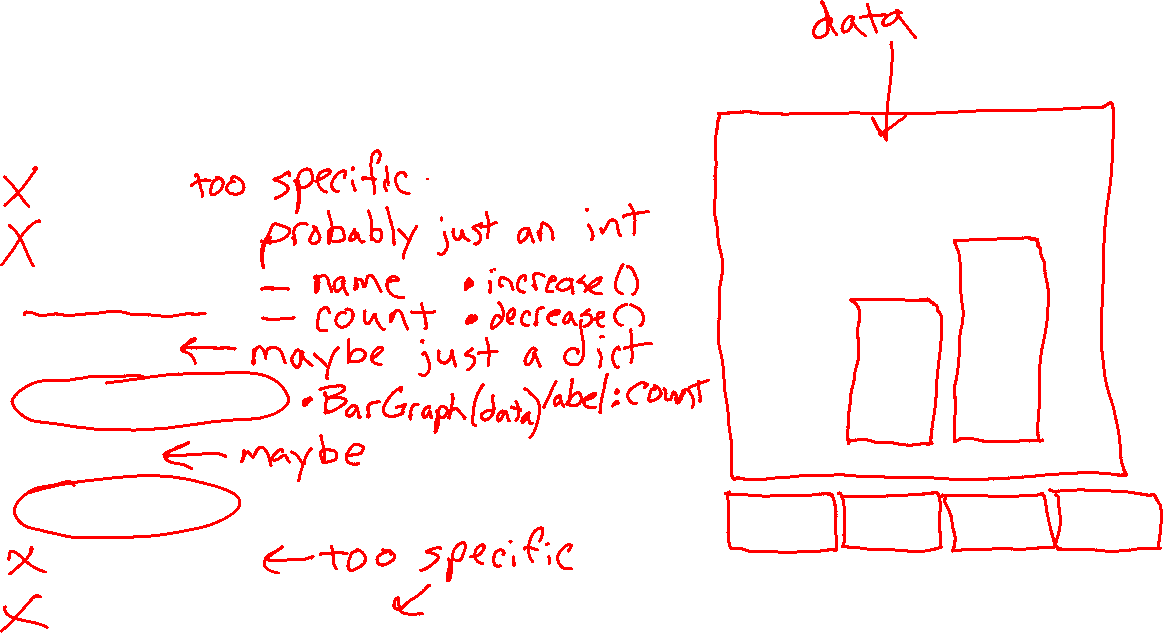 data
too specific
probably just an int
- name • increase()
- count • decrease()
← maybe just a dict
• BarGraph(data) label:count
← maybe
← too specific